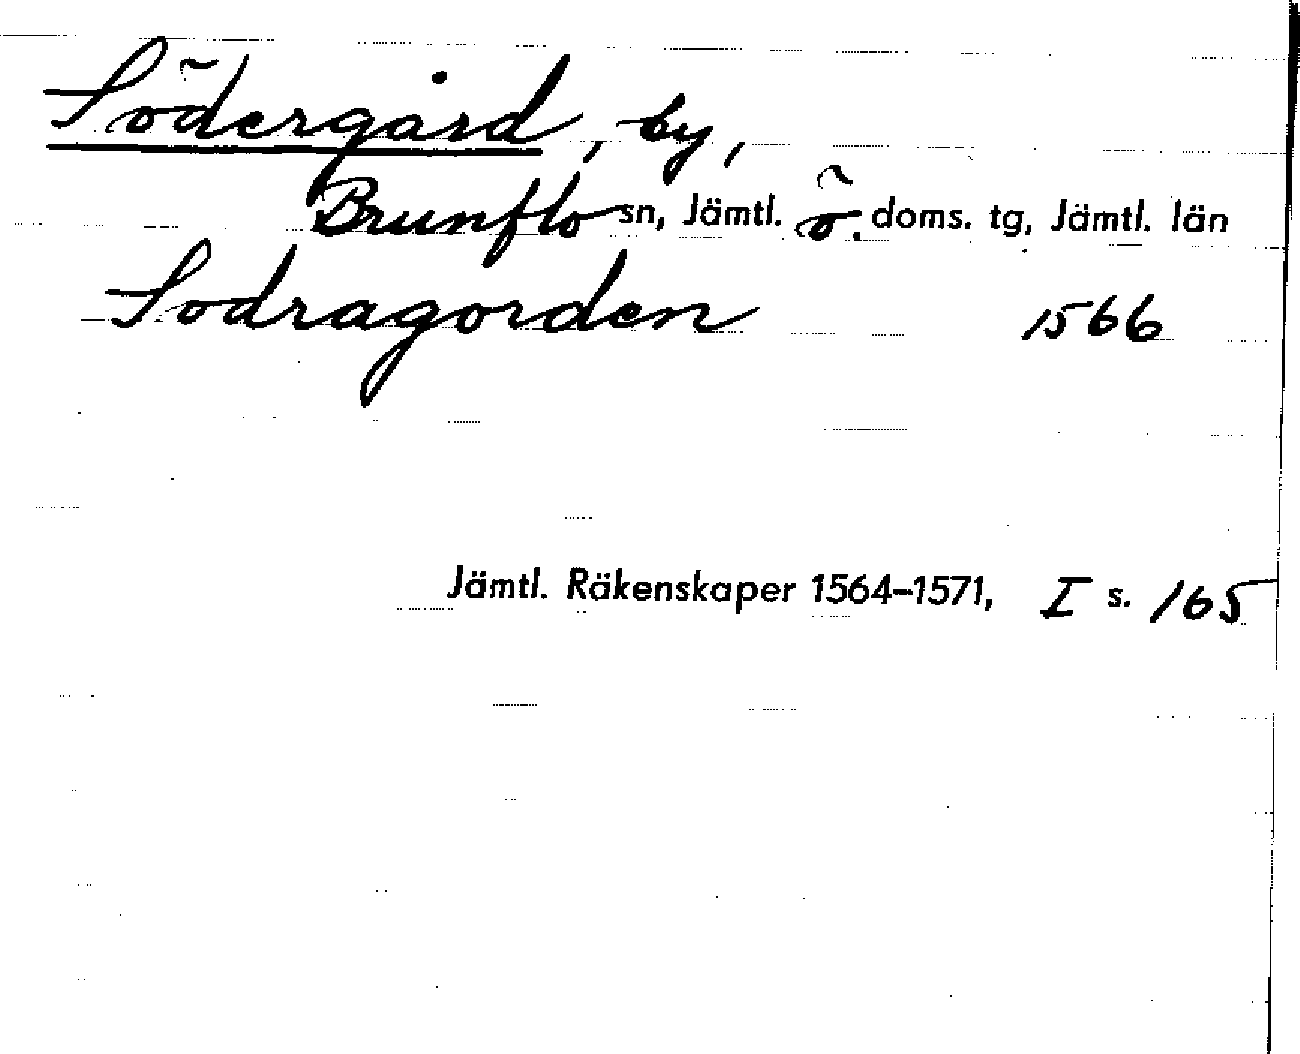 Södergård, by,
Brunflo sn, Jämtl. ö. doms. tg, Jämtl. län
Sodragorden 1566
Jämtl. Räkenskaper 1564–1571, I s. 165